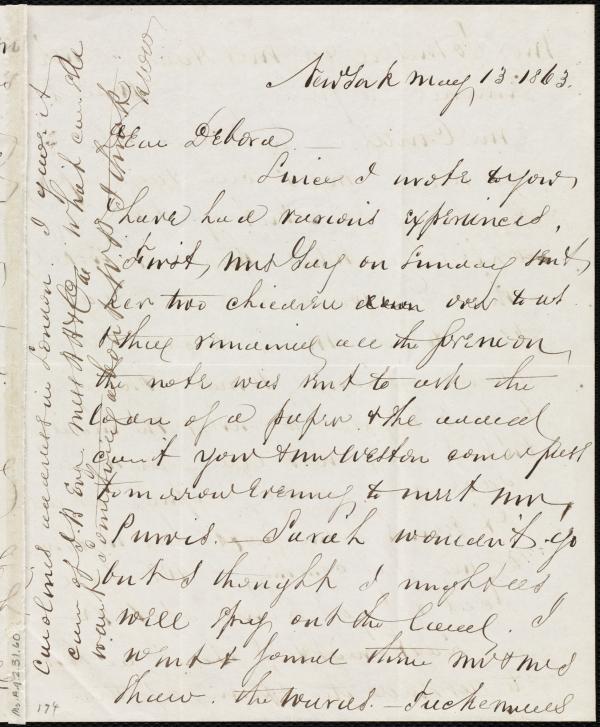 New York May 13 1863.
Dear Debora
Since I wrote to you,
I have had various experiences.
First, Mrs Gay on Sunday sent
her two children down over to us
& they remained all the forenoon,
the note was sent to ask the
loan of a paper & she added
can't you & Mr Weston come & pass
tomorrow evening to meet Mr
Purvis. — Sarah wouldn't go
but I thought I might as
well spy out the land. I
went & found there Mr & Mrs
Shaw. the Wards. — Tuckermans
Caroline's address in London. I gave it
care of J B Esq. Miss what can she
want
know
Ms.A.9.2.31.60
174